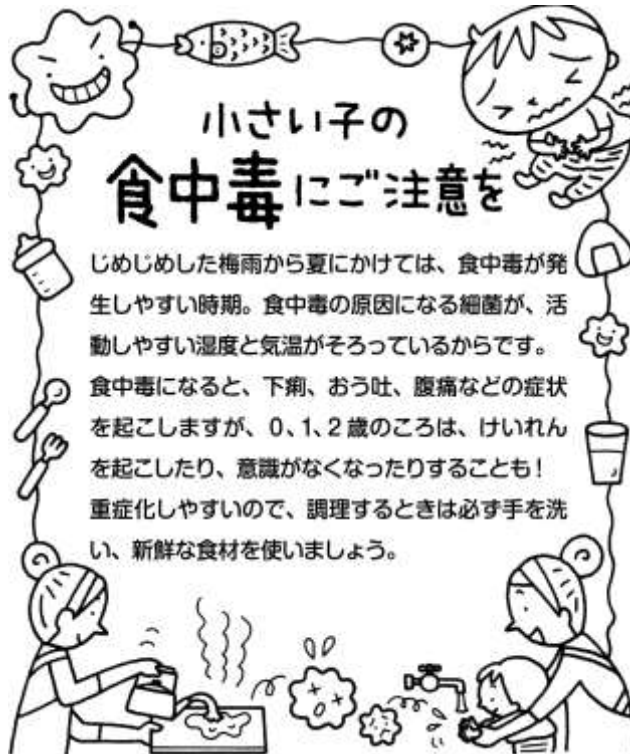 小さい子の
食中毒にご注意を
じめじめした梅雨から夏にかけては、食中毒が発
生しやすい時期。食中毒の原因になる細菌が、活
動しやすい湿度と気温がそろっているからです。
食中毒になると、下痢、おう吐、腹痛などの症状
を起こしますが、0、1、2歳のころは、けいれん
を起こしたり、意識がなくなったりすることも！
重症化しやすいので、調理するときは必ず手を洗
い、新鮮な食材を使いましょう。